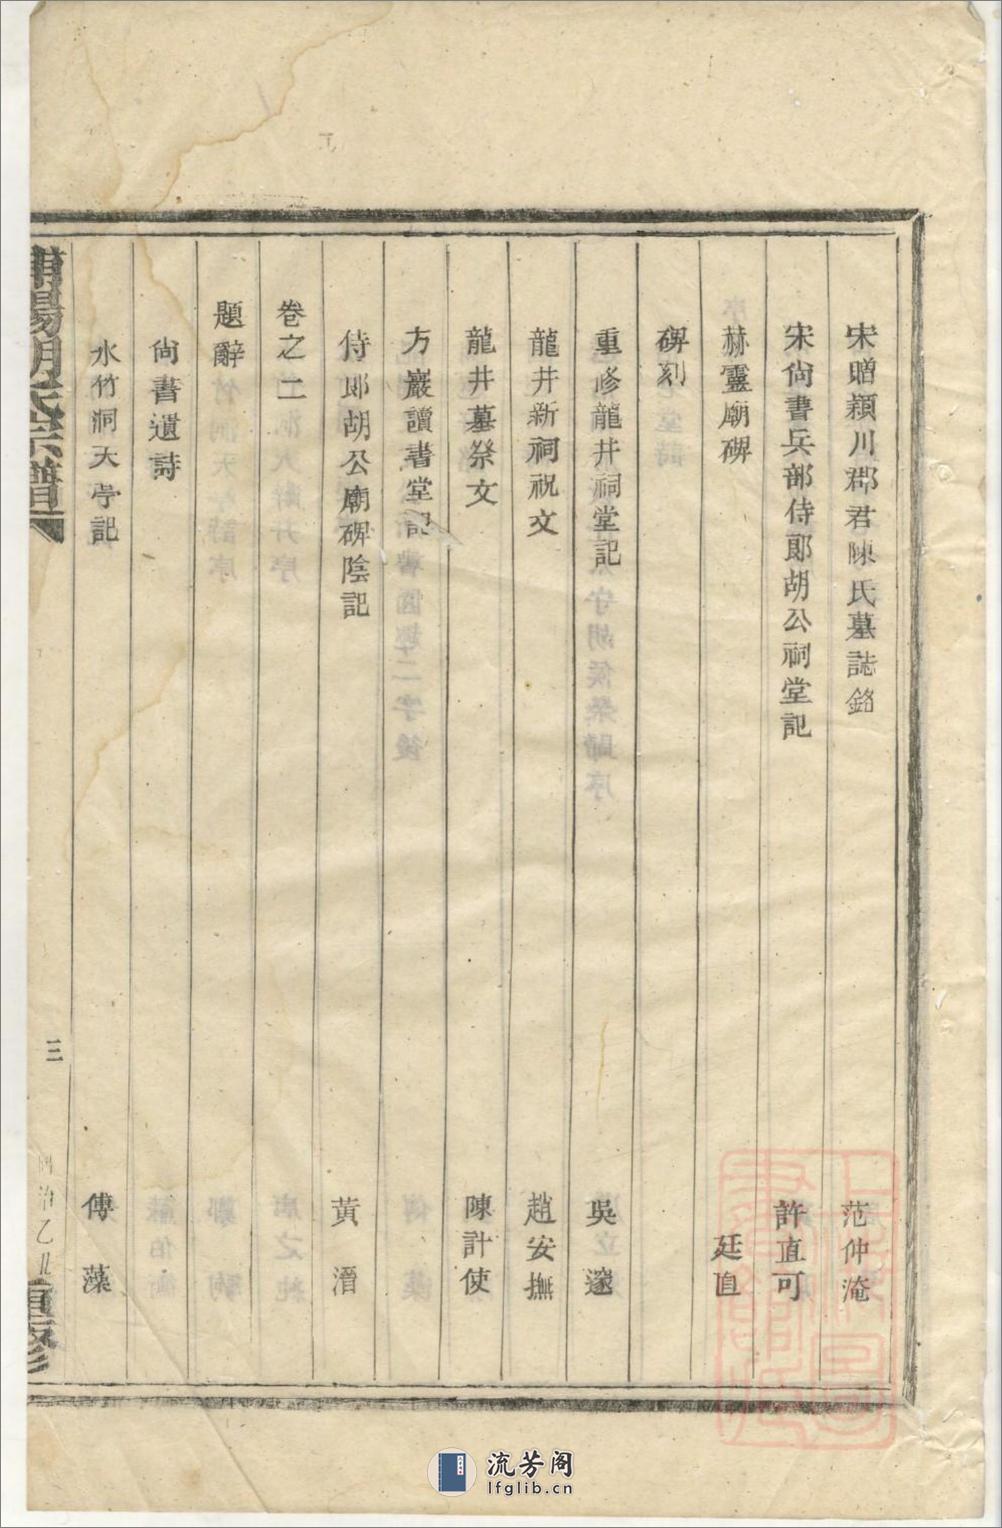 宋贈潁川郡君陳氏墓誌銘 范仲淹
宋尙書兵部侍郞胡公祠堂記 許直可
赫靈廟碑 廷直
碑刻
重修龍井祠堂記 吳邃
龍井新祠祝文 趙安撫
龍井墓祭文 陳計使
方巖讀書堂記
侍郞胡公廟碑陰記 黃溍
卷之二
題辭
尙書遺詩
水竹洞天亭記 傅藻
胡氏宗譜
三
治乙丑重修
流芳阁
lfglib.cn